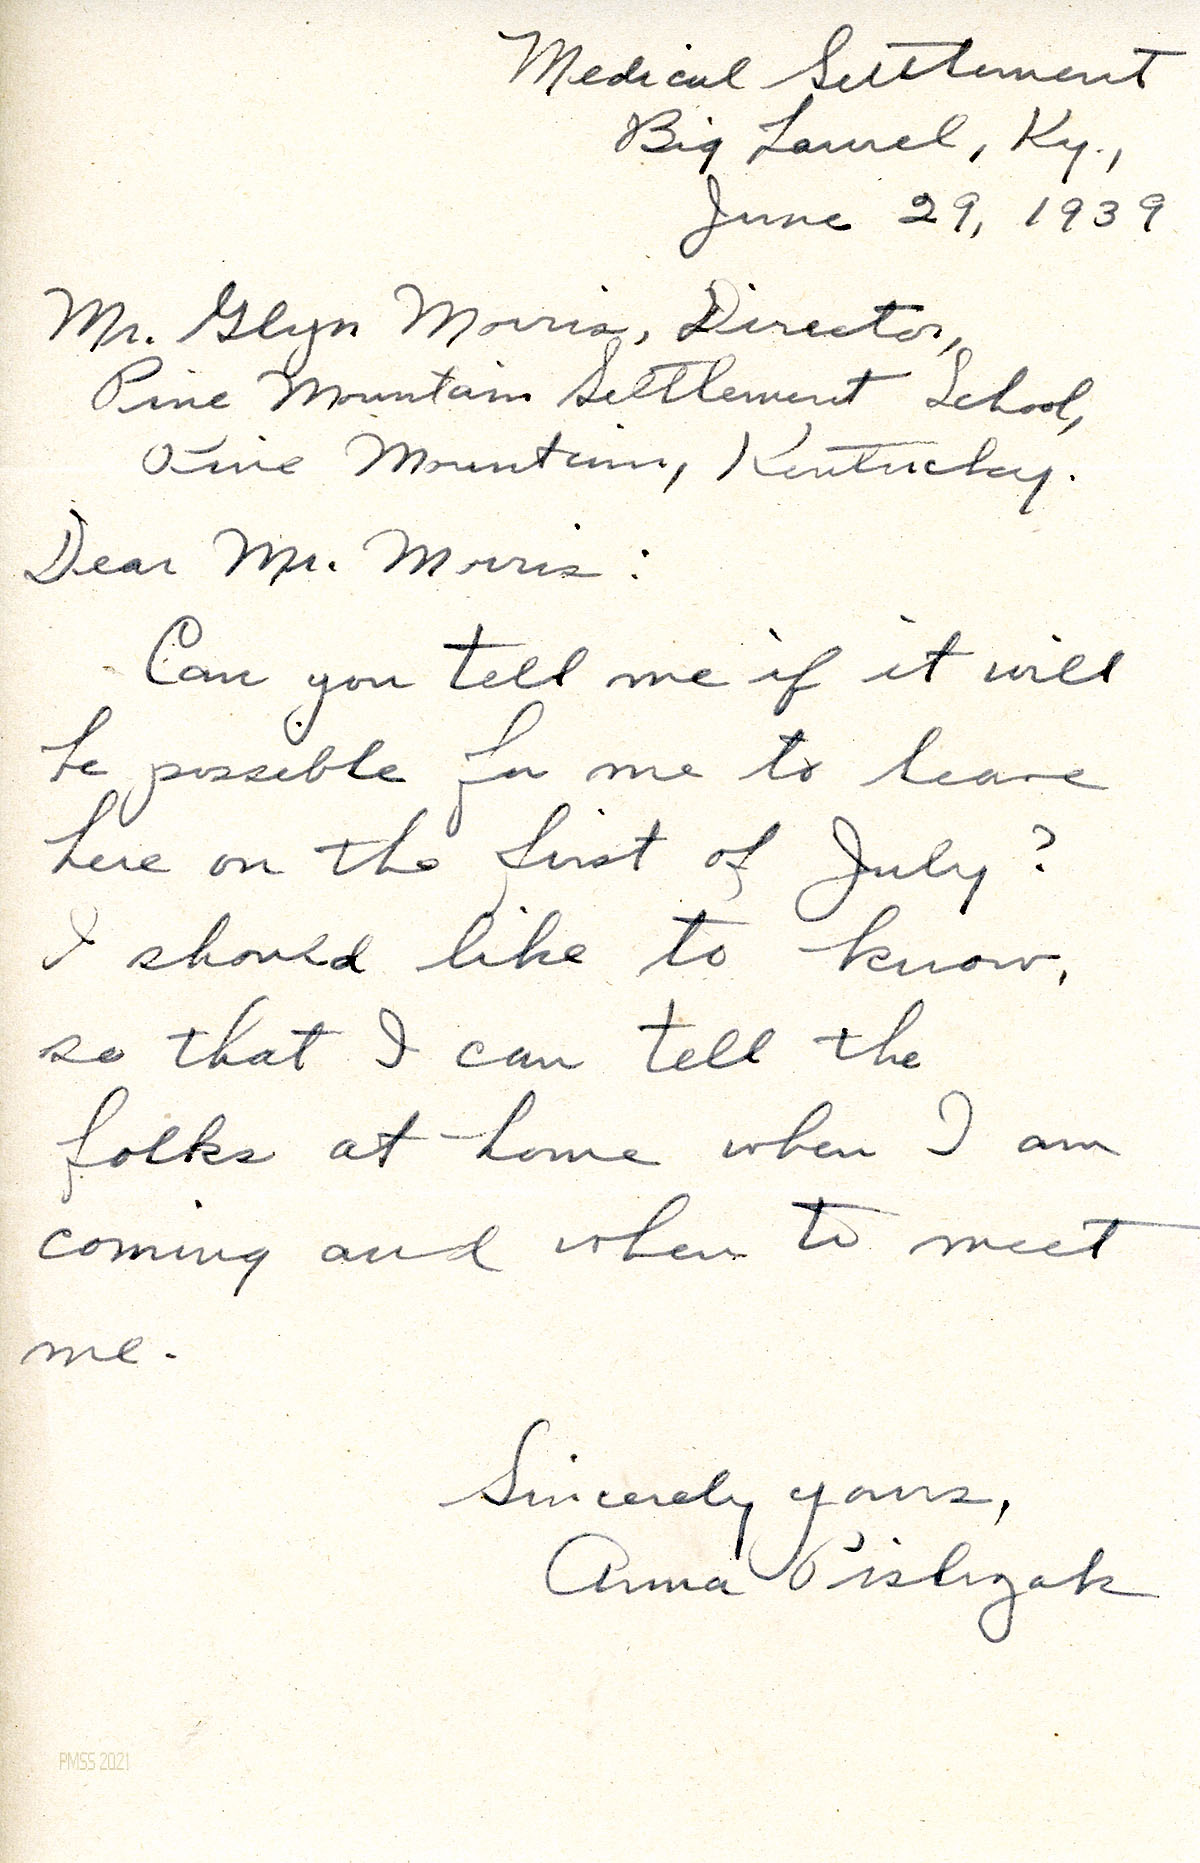 Medical Settlement
Big Laurel, Ky.,
June 29, 1939
Mr. Glyn Morris, Director,
Pine Mountain Settlement School,
Pine Mountain, Kentucky.
Dear Mr. Morris:
Can you tell me if it will
be possible for me to leave
here on the first of July?
I should like to know,
so that I can tell the
folks at home when I am
coming and when to meet
me.
Sincerely yours,
Anna Pishzak
PMSS 2021